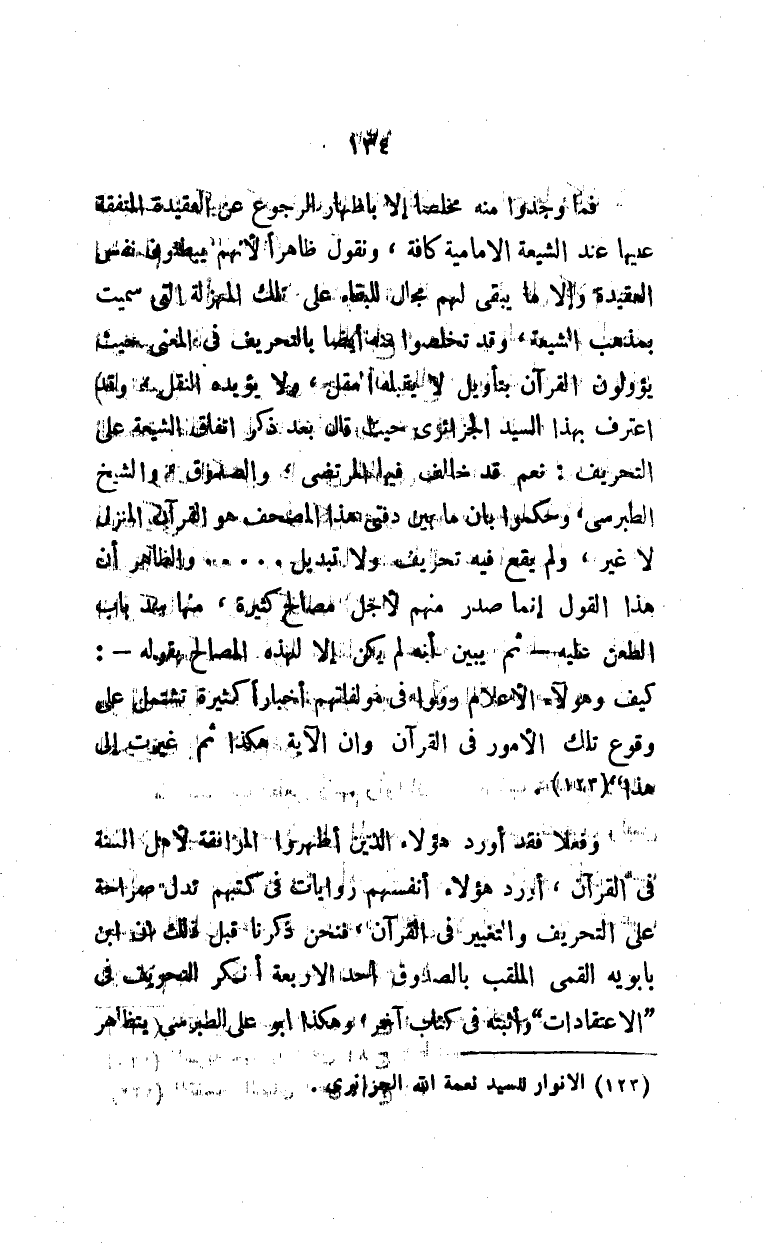 ١٣٤
فما وجدوا منه مخلصا إلا باظهار الرجوع عن العقيدة المتفقة
عليها عند الشيعة الامامية كافة ، ونقول ظاهراً لأنهم يبطنون نفس
العقيدة وإلا ما يبقى لهم مجال للبقاء على تلك المهزلة التى سميت
بمذهب الشيعة ، وقد تخلصوا منه أيضا بالتحريف فى المعنى حيث
يؤولون القرآن بتأويل لا يقبله العقل ، ولا يؤيده النقل ، ولقد
اعترف بهذا السيد الجزائرى حيث قال بعد ذكر اتفاق الشيعة على
التحريف : نعم قد خالف فيها المرتضى ، والصدوق ، والشيخ
الطبرسى ، وحكموا بان ما بين دفتى هذا المصحف هو القرآن المنزل
لا غير ، ولم يقع فيه تحريف ولا تبديل ..... والظاهر أن
هذا القول إنما صدر منهم لأجل مصالح كثيرة ، منها سد باب
الطعن عليه — ثم يبين أنه لم يكن إلا لهذه المصالح بقوله — :
كيف وهولآء الأعلام رووا فى مولفاتهم أخباراً كثيرة تشتمل على
وقوع تلك الأمور فى القرآن وان الآية هكذا ثم غيرت إلى
هذا“(١٢٣) .
وفعلا فقد أورد هؤلاء الذين أظهروا الموافقة لأهل السنة
فى القرآن ، أورد هؤلاء أنفسهم روايات فى كتبهم تدل صراحة
على التحريف والتغيير فى القرآن ، فنحن ذكرنا قبل ذلك ان ابن
بابويه القمى الملقب بالصدوق أحد الاربعة أنكر التحريف فى
”الاعتقادات“ وأثبته فى كتاب آخر ، وهكذا ابو على الطبرسى يتظاهر
(١٢٣) الانوار للسيد نعمة الله الجزائرى .